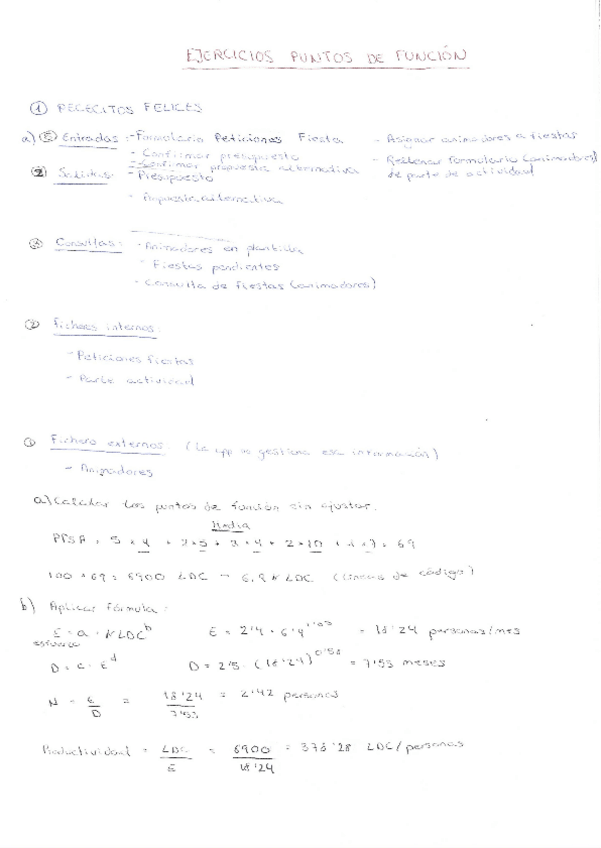 EJERCICIOS PUNTOS DE FUNCIÓN
① REGECITOS FELICES
a) ⑤ Entradas: - Formulario Peticiones Fiesta - Asignar animadores a fiestas
- Confirmar presupuesto - Rellenar formulario (animadores)
- Confirmar propuesta alternativa de parte de actividad
② Salidas: - Presupuesto
- Propuesta alternativa
③ Consultas: - Animadores en plantilla
- Fiestas pendientes
- Consulta de fiestas (animadores)
② Ficheros internos:
- Peticiones fiestas
- Parte actividad
① Fichero externos: (La app no gestiona esa información)
- Animadores
a) Calcular los puntos de función sin ajustar.
Media
PFSA = 5 × 4 + 2 × 5 + 3 × 4 + 2 × 10 + 1 × 7 = 69
100 × 69 = 6900 LDC → 6,9 K LDC (líneas de código)
b) Aplicar fórmula:
E = a · KLDC^b E = 2'4 · 6'9^1'05 = 18'24 personas/mes
esfuerzo
D = c · E^d D = 2'5 · (18'24)^0'38 = 7'53 meses
N = E/D = 18'24/7'53 = 2'42 personas
Productividad = LDC/E = 6900/18'24 = 378'28 LDC/personas